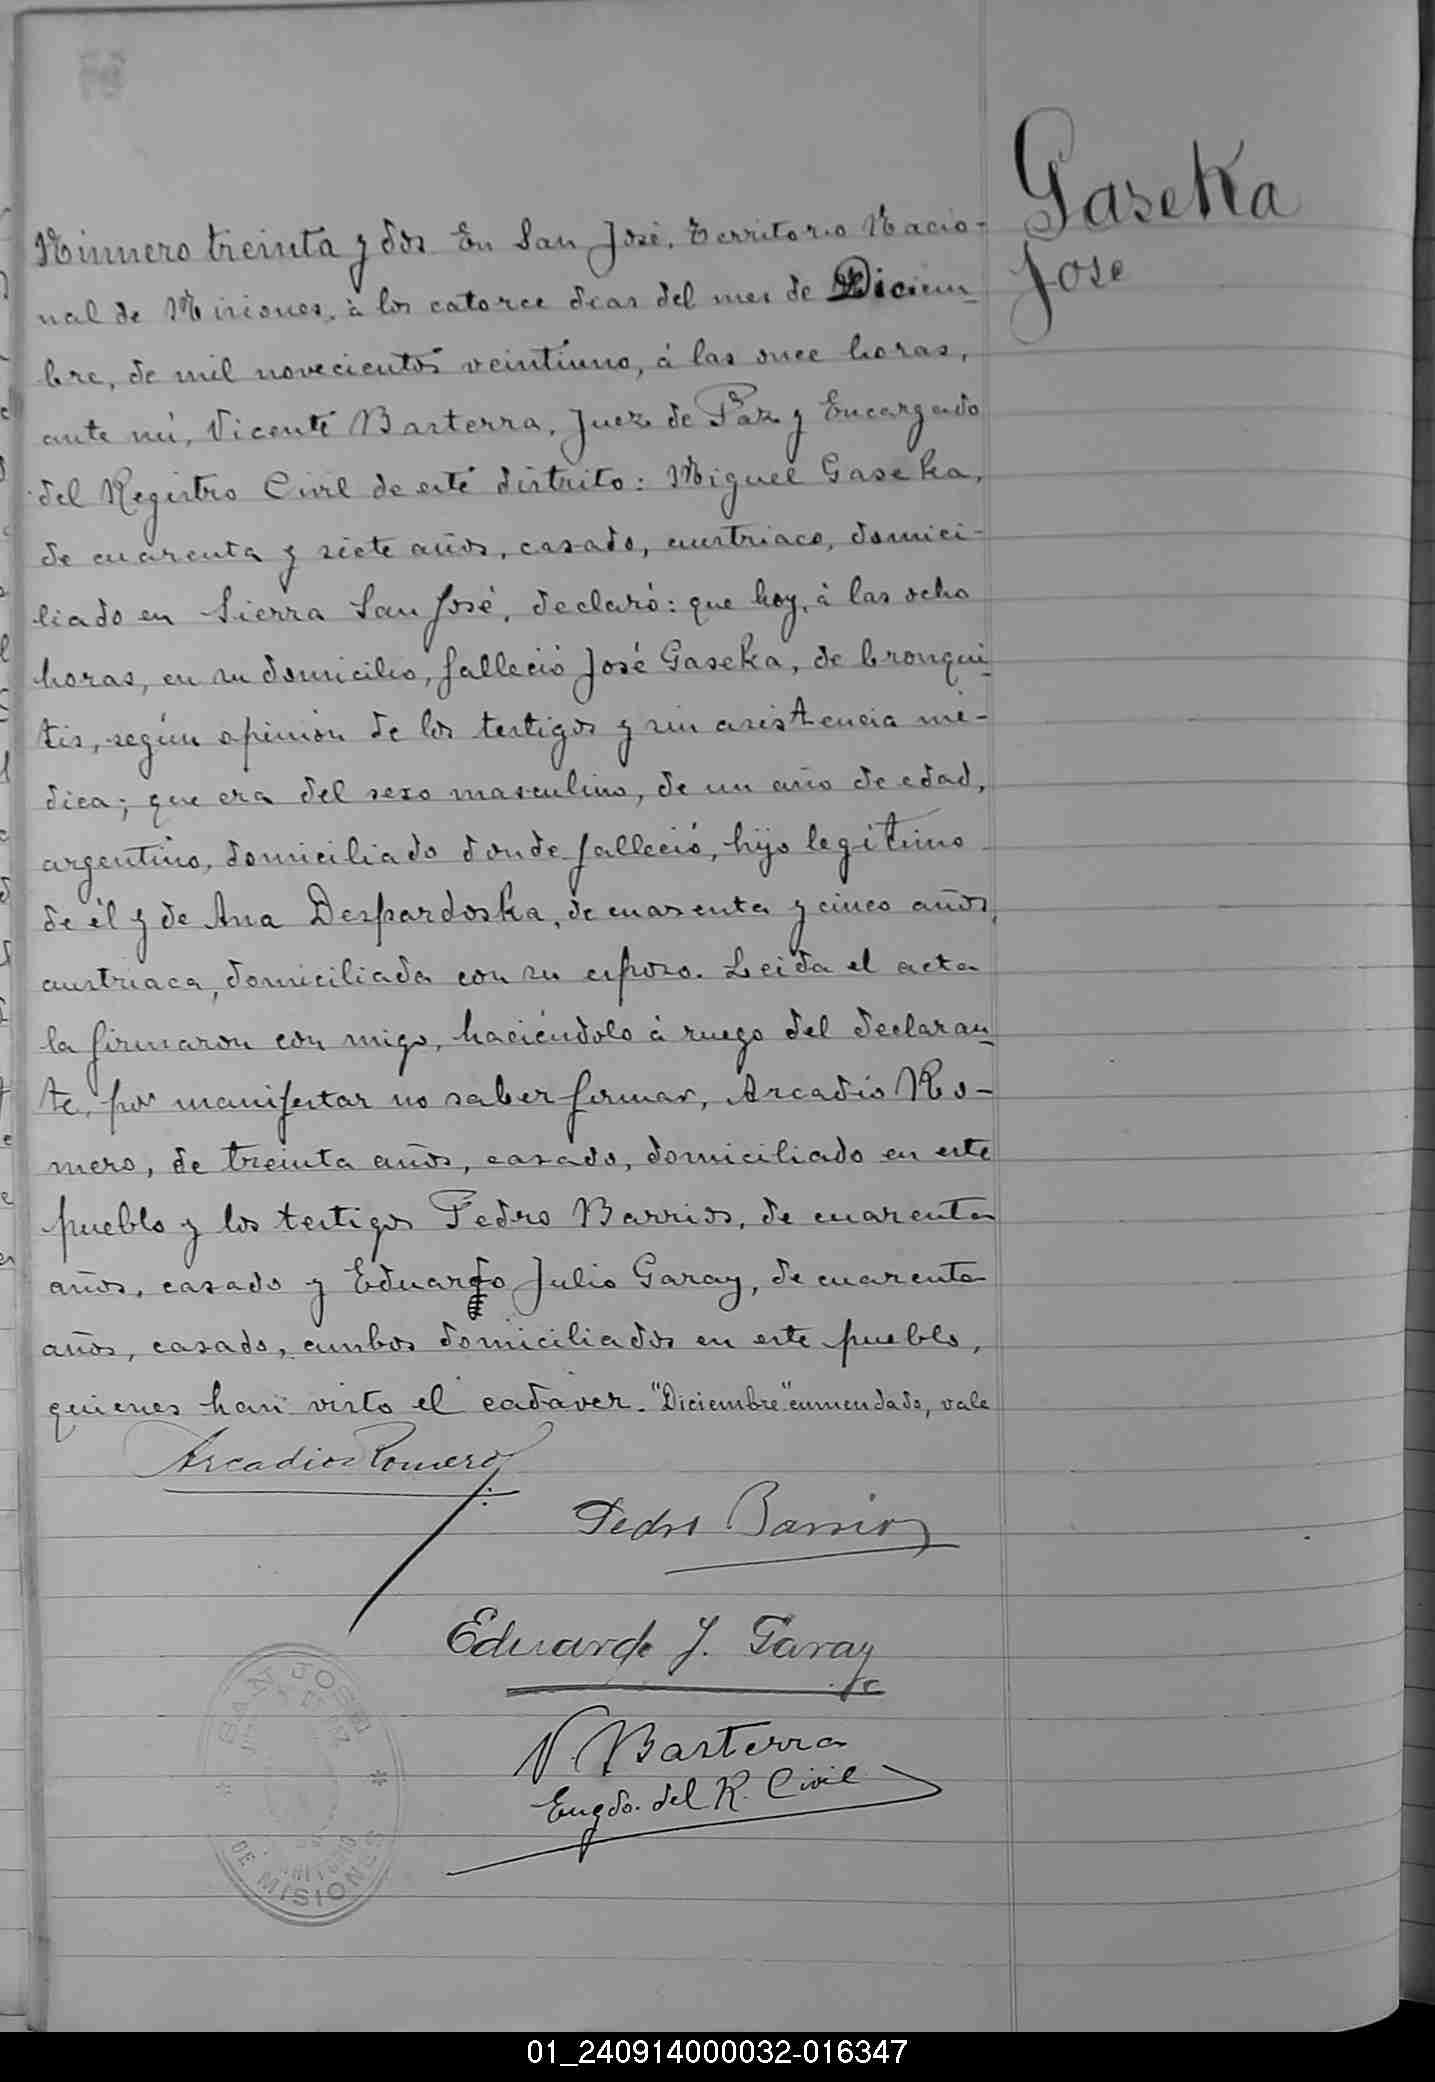 Gaseka
Jose
Número treinta y dos En San José, Territorio Nacio-
nal de Misiones, á los catorce dias del mes de Diciem-
bre, de mil novecientos veintiuno, á las once horas,
ante mí, Vicente Basterra, Juez de Paz y Encargado
del Registro Civil de este distrito: Miguel Gaseka,
de cuarenta y siete años, casado, austriaco, domici-
liado en Sierra San José, declaró: que hoy, á las ocho
horas, en su domicilio, falleció José Gaseka, de bronqui-
tis, según opinión de los testigos y sin asistencia mé-
dica; que era del sexo masculino, de un año de edad,
argentino, domiciliado donde falleció, hijo legítimo
de él y de Ana Despardoska, de cuarenta y cinco años,
austriaca, domiciliada con su esposo. Leida el acta
la firmaron con migo, haciéndolo á ruego del declaran-
te, por manifestar no saber firmar, Arcadio Ro-
mero, de treinta años, casado, domiciliado en este
pueblo y los testigos Pedro Barrios, de cuarenta
años, casado y Eduardo Julio Garay, de cuarenta
años, casado, ambos domiciliados en este pueblo,
quienes han visto el cadáver. "Diciembre" enmendado, vale
Arcadio Romero
Pedro Barrios
Eduardo J. Garay
V. Basterra
Engdo. del R. Civil
SAN JOSE
DE MISIONES
01_240914000032-016347